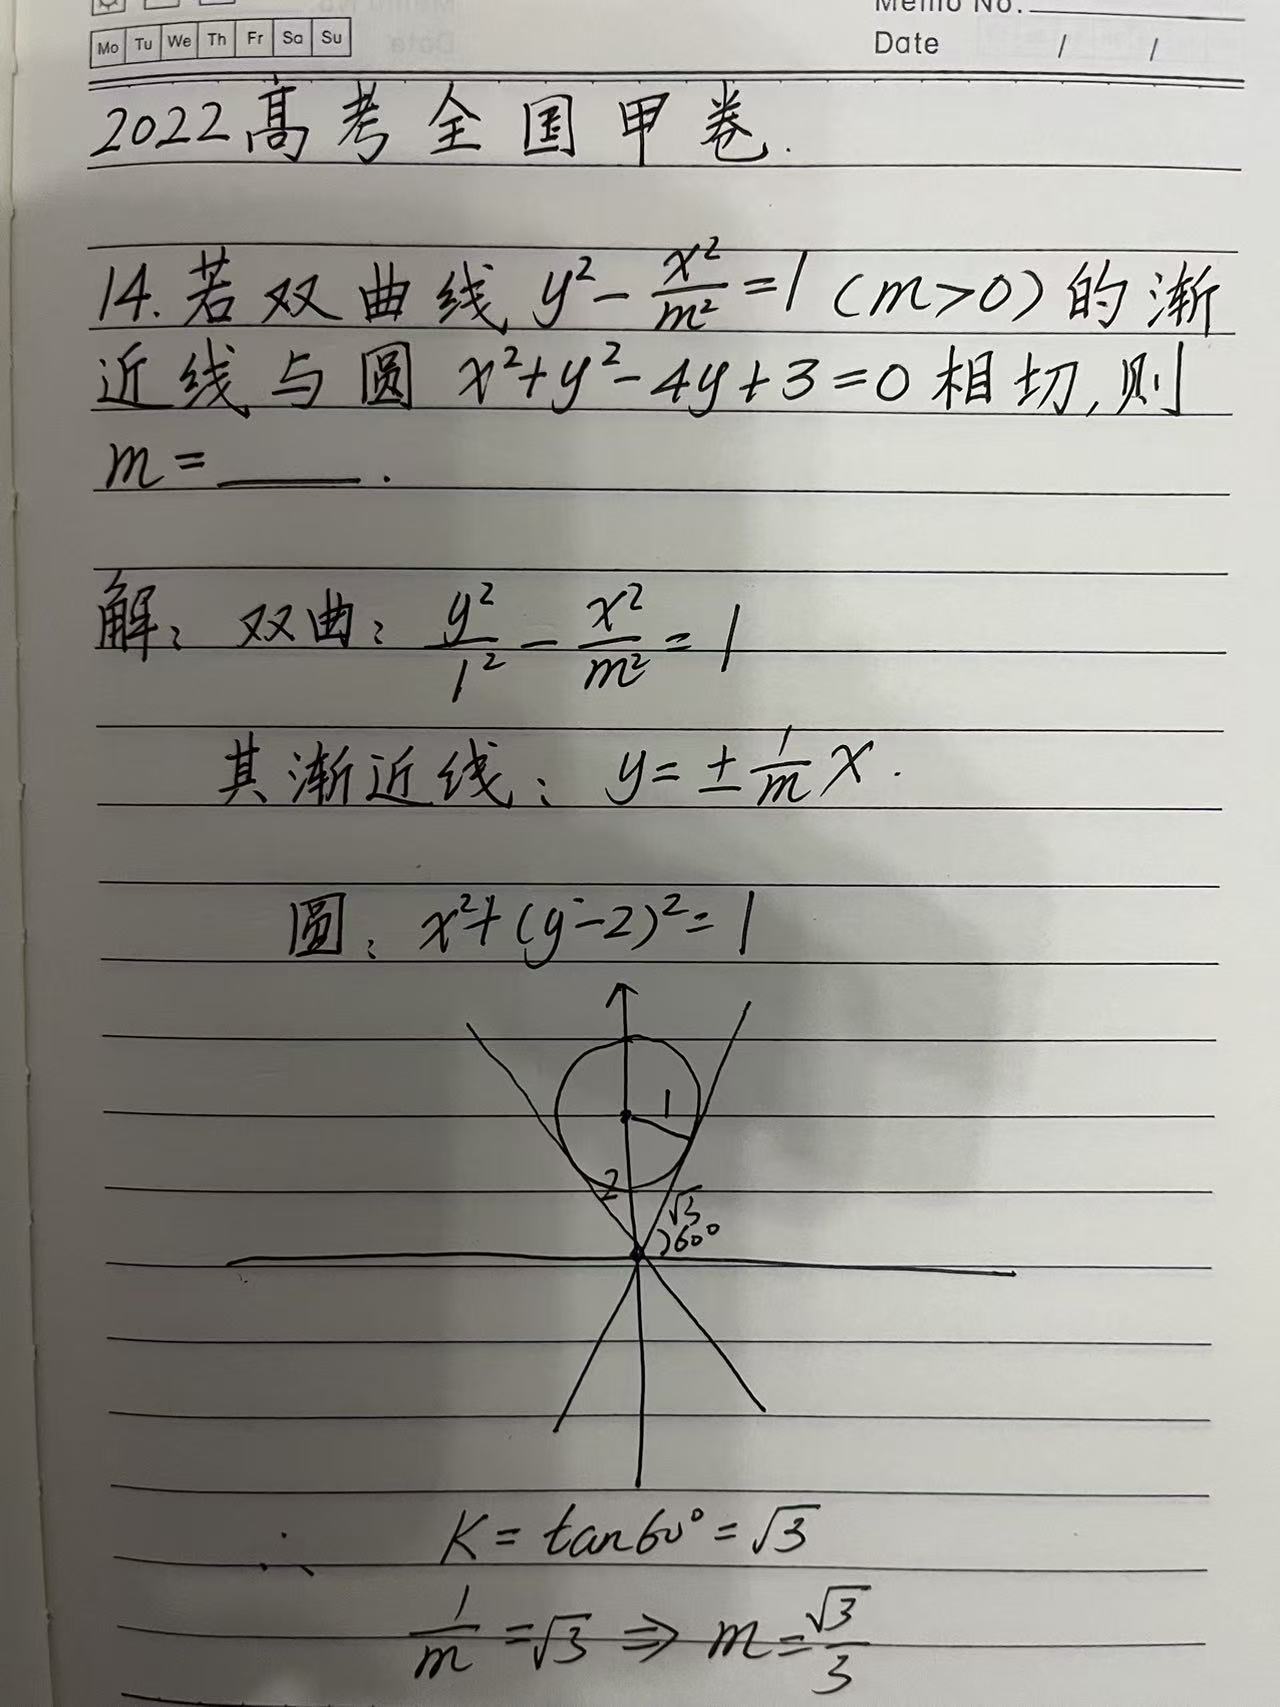 Memo No.:
Mo Tu We Th Fr Sa Su
Date / /
2022高考全国甲卷.
14.若双曲线 y²-x²/m²=1(m>0)的渐
近线与圆 x²+y²-4y+3=0相切,则
m=____.
解:双曲:y²/1²-x²/m²=1
其渐近线:y=±1/m x.
圆:x²+(y-2)²=1
1
2
√3
60°
∴ K=tan60°=√3
1/m=√3⇒m=√3/3